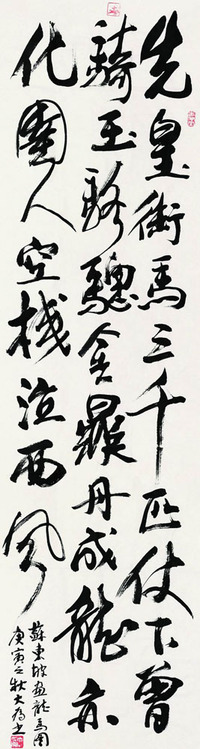 先皇御馬三千匹仗下曾
騎玉駱驄金鼎丹成龍亦
化圉人空棧泣西風
蘇東坡畫龍馬圖
庚寅之秋大為書